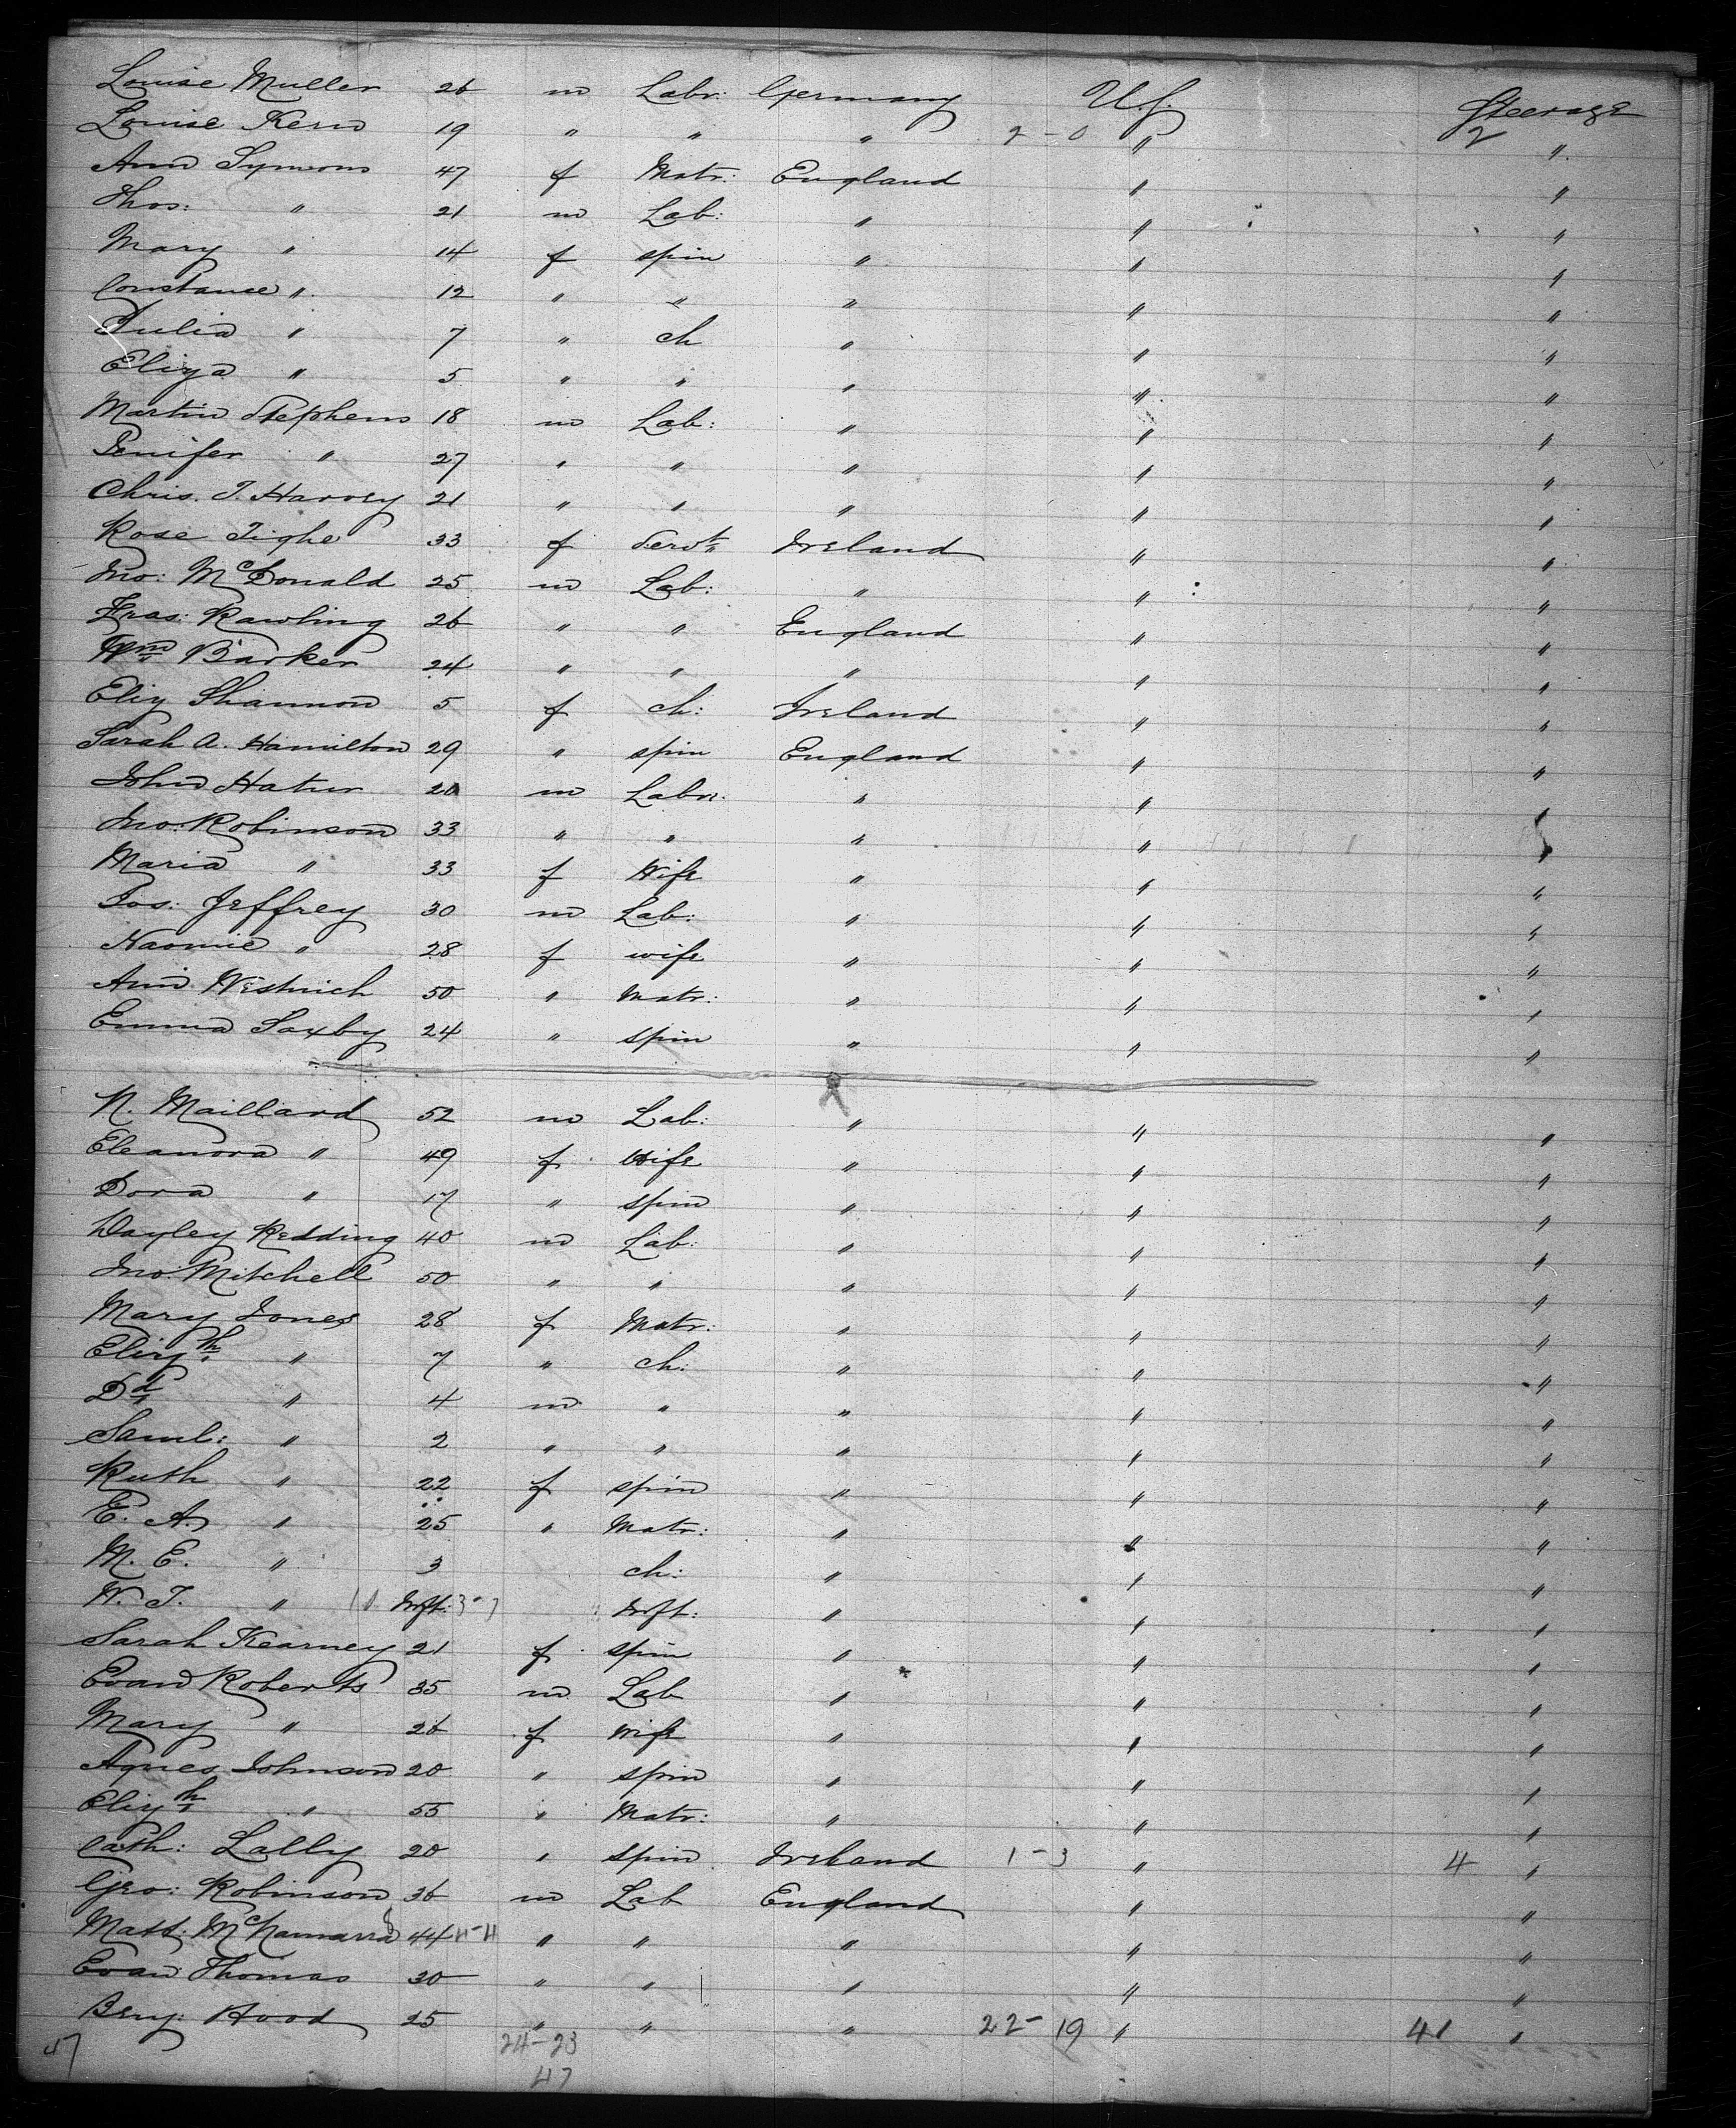 Louise Muller 26 m Labr: Germany U.S. Steerage
Louise Kern 19 " " " 2-0 " 2 "
Ann Symons 47 f Matr: England " "
Thos: " 21 m Lab: " " "
Mary " 14 f spin " " "
Constance " 12 " " " " "
Julia " 7 " ch " " "
Eliza " 5 " " " " "
Martin Stephens 18 m Lab: " " "
Jenifer " 27 " " " " "
Chris. T. Harvey 21 " " " " "
Rose Tighe 33 f Servt. Ireland " "
Jno: McDonald 25 m Lab: " " "
Fras: Rawling 26 " " England " "
Wm Barker 24 " " " " "
Eliz Shannon 5 f ch: Ireland " "
Sarah A. Hamilton 29 " spin England " "
John 20 m Labr. " " "
Jno: Robinson 33 " " " " "
Maria " 33 f Wife " " "
Jos: Jeffrey 30 m Lab: " " "
Naomie " 28 f wife " " "
Ann 50 " Matr: " " "
Emma Saxby 24 " spin " " "
N. Maillard 52 m Lab: " " "
Eleanora " 49 f Wife " " "
Dora " 17 " spin " " "
Wayley Redding 40 m Lab: " " "
Jno: Mitchell 50 " " " " "
Mary Jones 28 f Matr: " " "
Elizth " 7 " ch: " " "
Dd " 4 m " " " "
Saml: " 2 " " " " "
Ruth " 22 f spin " " "
E. A. " 25 " Matr: " " "
M. E. " 3 ch: " " "
W. T. " Inft: Inft: " " "
Sarah Kearney 21 f spin " " "
Evan Roberts 35 m Lab " " "
Mary " 26 f wife " " "
Agnes Johnson 20 " spin " " "
Elizth " 55 " Matr: " " "
Cath: Lally 20 " spin Ireland 1-3 " 4 "
Geo: Robinson 36 m Lab England " "
Matt: McNamara 44 " " " " "
Evan Thomas 30 " " " " "
Benj: Hood 25 " " " 22-19 " 41 "
47 24-23
47